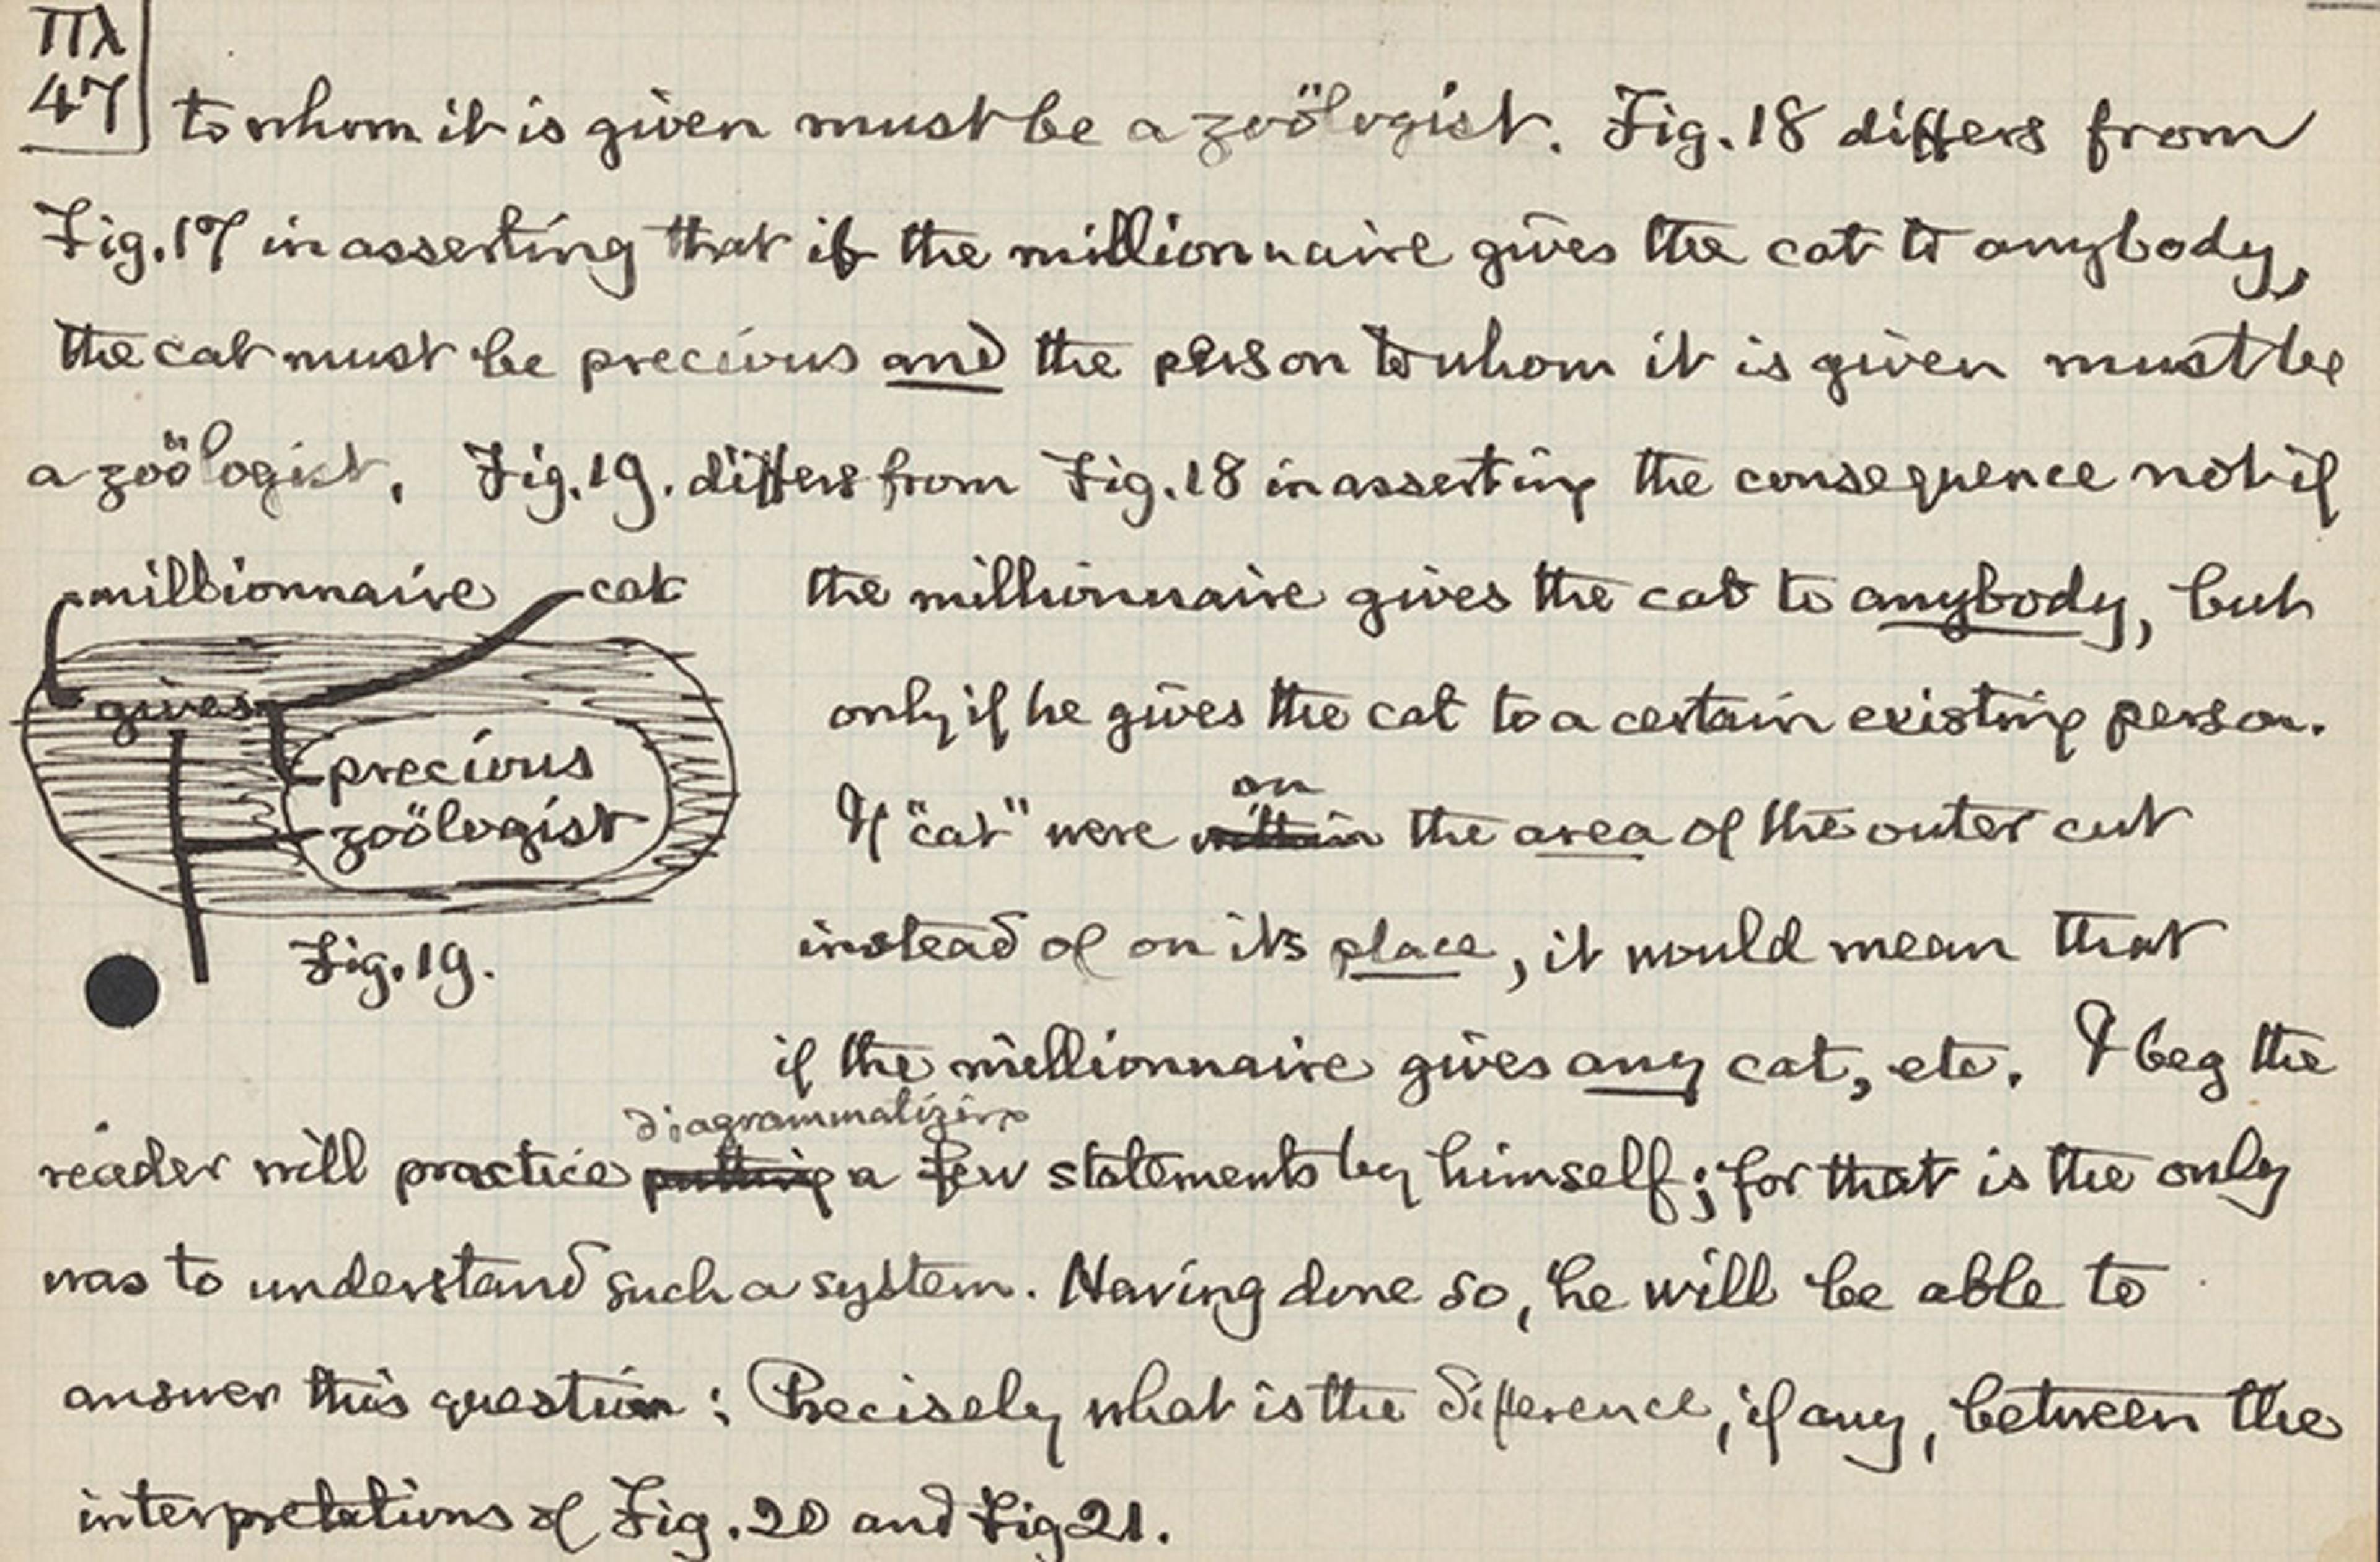 Πλ
47
to whom it is given must be a zoölogist. Fig. 18 differs from
Fig. 17 in asserting that if the millionnaire gives the cat to anybody,
the cat must be precious and the person to whom it is given must be
a zoölogist. Fig. 19. differs from Fig. 18 in asserting the consequence not if
millionnaire cat
gives
precious
zoölogist
Fig. 19.
the millionnaire gives the cat to anybody, but
only if he gives the cat to a certain existing person.
on
If "cat" were within the area of the outer cut
instead of on its place, it would mean that
if the millionnaire gives any cat, etc. I beg the
diagrammatizing
reader will practice putting a few statements by himself; for that is the only
was to understand such a system. Having done so, he will be able to
answer this question: Precisely what is the difference, if any, between the
interpretations of Fig. 20 and Fig 21.